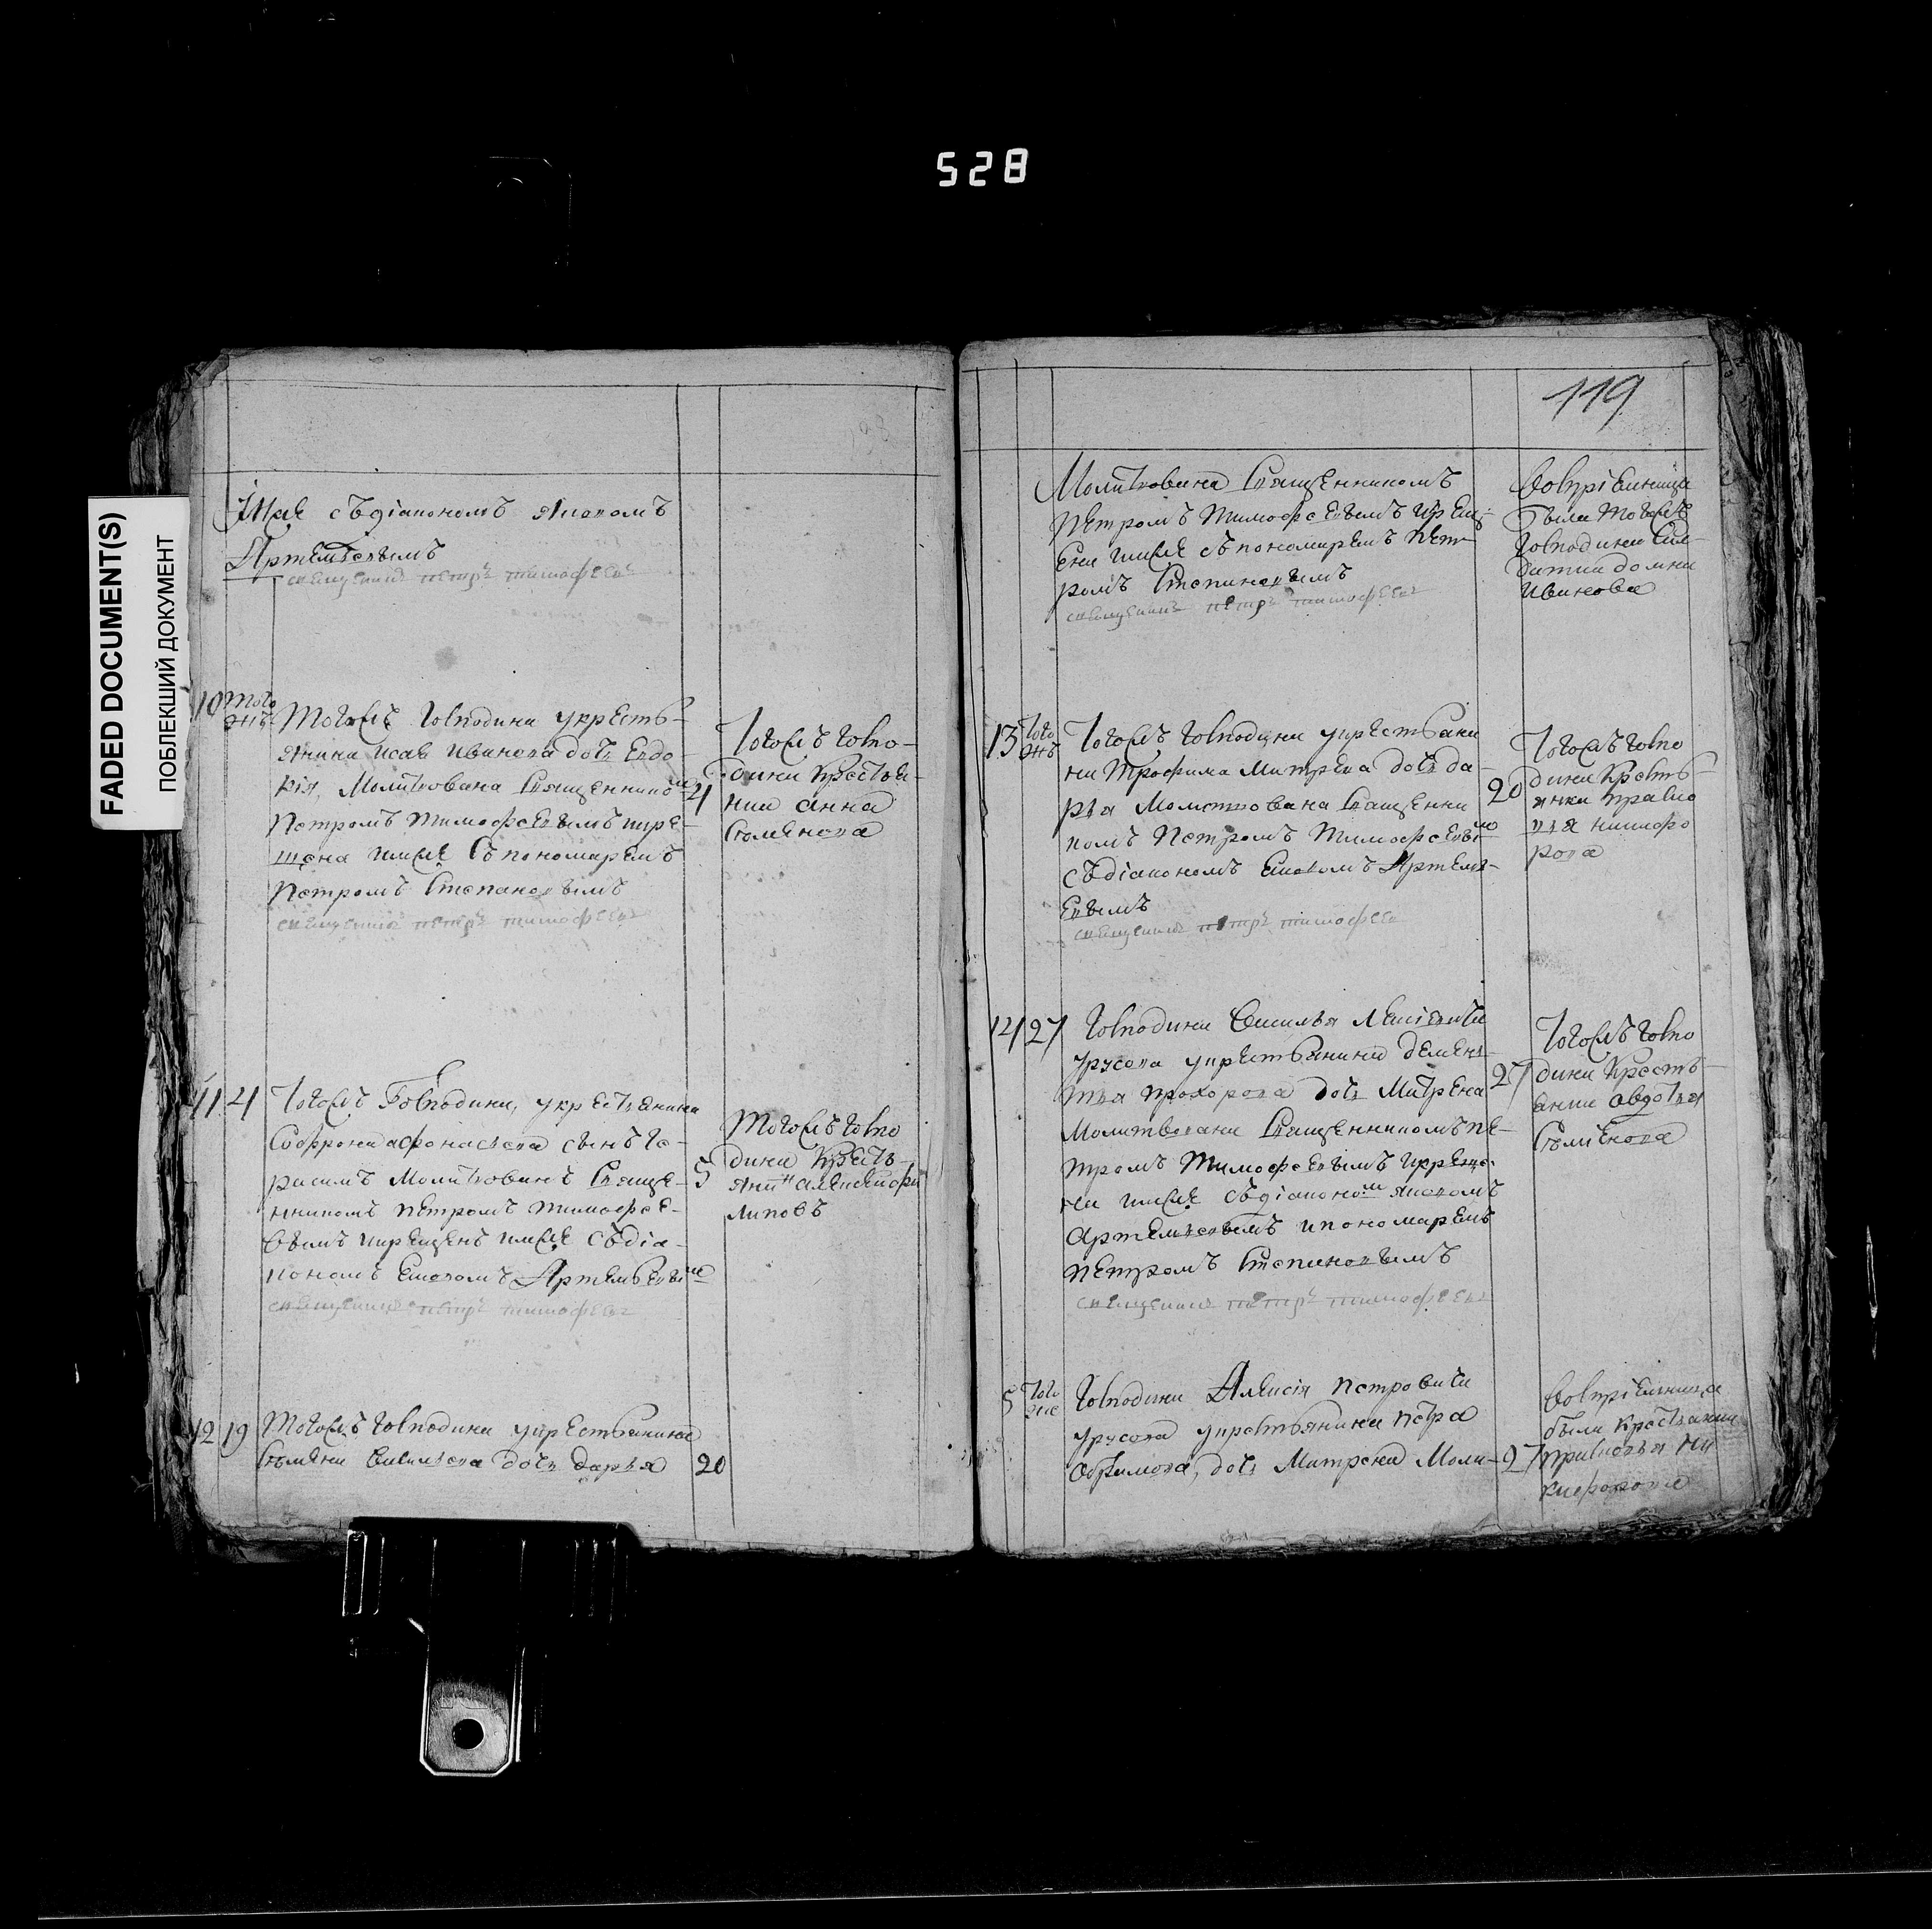 528
FADED DOCUMENT(S)
ПОБЛЕКШИЙ ДОКУМЕНТ
119
имже съдіакономъ яковомъ
Артемьевымъ
священникъ петръ тимофеевъ
10 того жъ
Тогожъ господина укресть-
янина исая иванова дочь Евдо-
кія, Молитвована священником
петромъ тимофеевымъ икре-
щена имже съ пономаремъ
петромъ степановымъ
священникъ петръ тимофеевъ
4
Тогожъ госпо-
дина крестьян-
ка анна
семенова
11 4
Тогожъ Господина, укрестьянина
Софрона афонасьева сынъ ге-
расимъ молитвованъ свяще-
нникомъ петромъ тимофее-
вымъ икрещенъ имже съдіа-
кономъ Ековомъ Артемьевым
священникъ петръ тимофеевъ
5
Тогожъ госпо
дина кресть-
янин алексей фи
липовъ
12 19
Тогожъ господина укрестьянина
семена васильева дочь дарья
20
Молитвована священникомъ
петромъ тимофеевымъ икрещ-
ена имже съ пономаремъ пет-
ромъ степановымъ
священникъ петръ тимофеевъ
восприемница
была тогожъ
господина
домна
иванова
13 того жъ
Тогожъ господина укрестьяни
на трофима митрева дочь да-
рья молитвована священни
комъ петромъ тимофеевым
съдіакономъ Ековомъ Артемь-
Евымъ
священникъ петръ тимофеев
20
Тогожъ госпо
дина кресть-
янка праско
вья никифо
рова
14 27
господина василья алексіевича
урусова укрестьянина демен-
тья прохорова дочь матрена
молитвована священникомъ пе-
тромъ тимофеевымъ икреще-
на имже съдіаконом яковомъ
артемьевымъ ипономаремъ
петромъ степановымъ
священникъ петръ тимофеевъ
27
Тогожъ госпо
дина кресть-
янка авдотья
семенова
5 того же
господина Алексія петровича
урусова укрестьянина петра
дочь матрена моли-
27
восприемница
была крестьянка
прасковья ни
кифорова